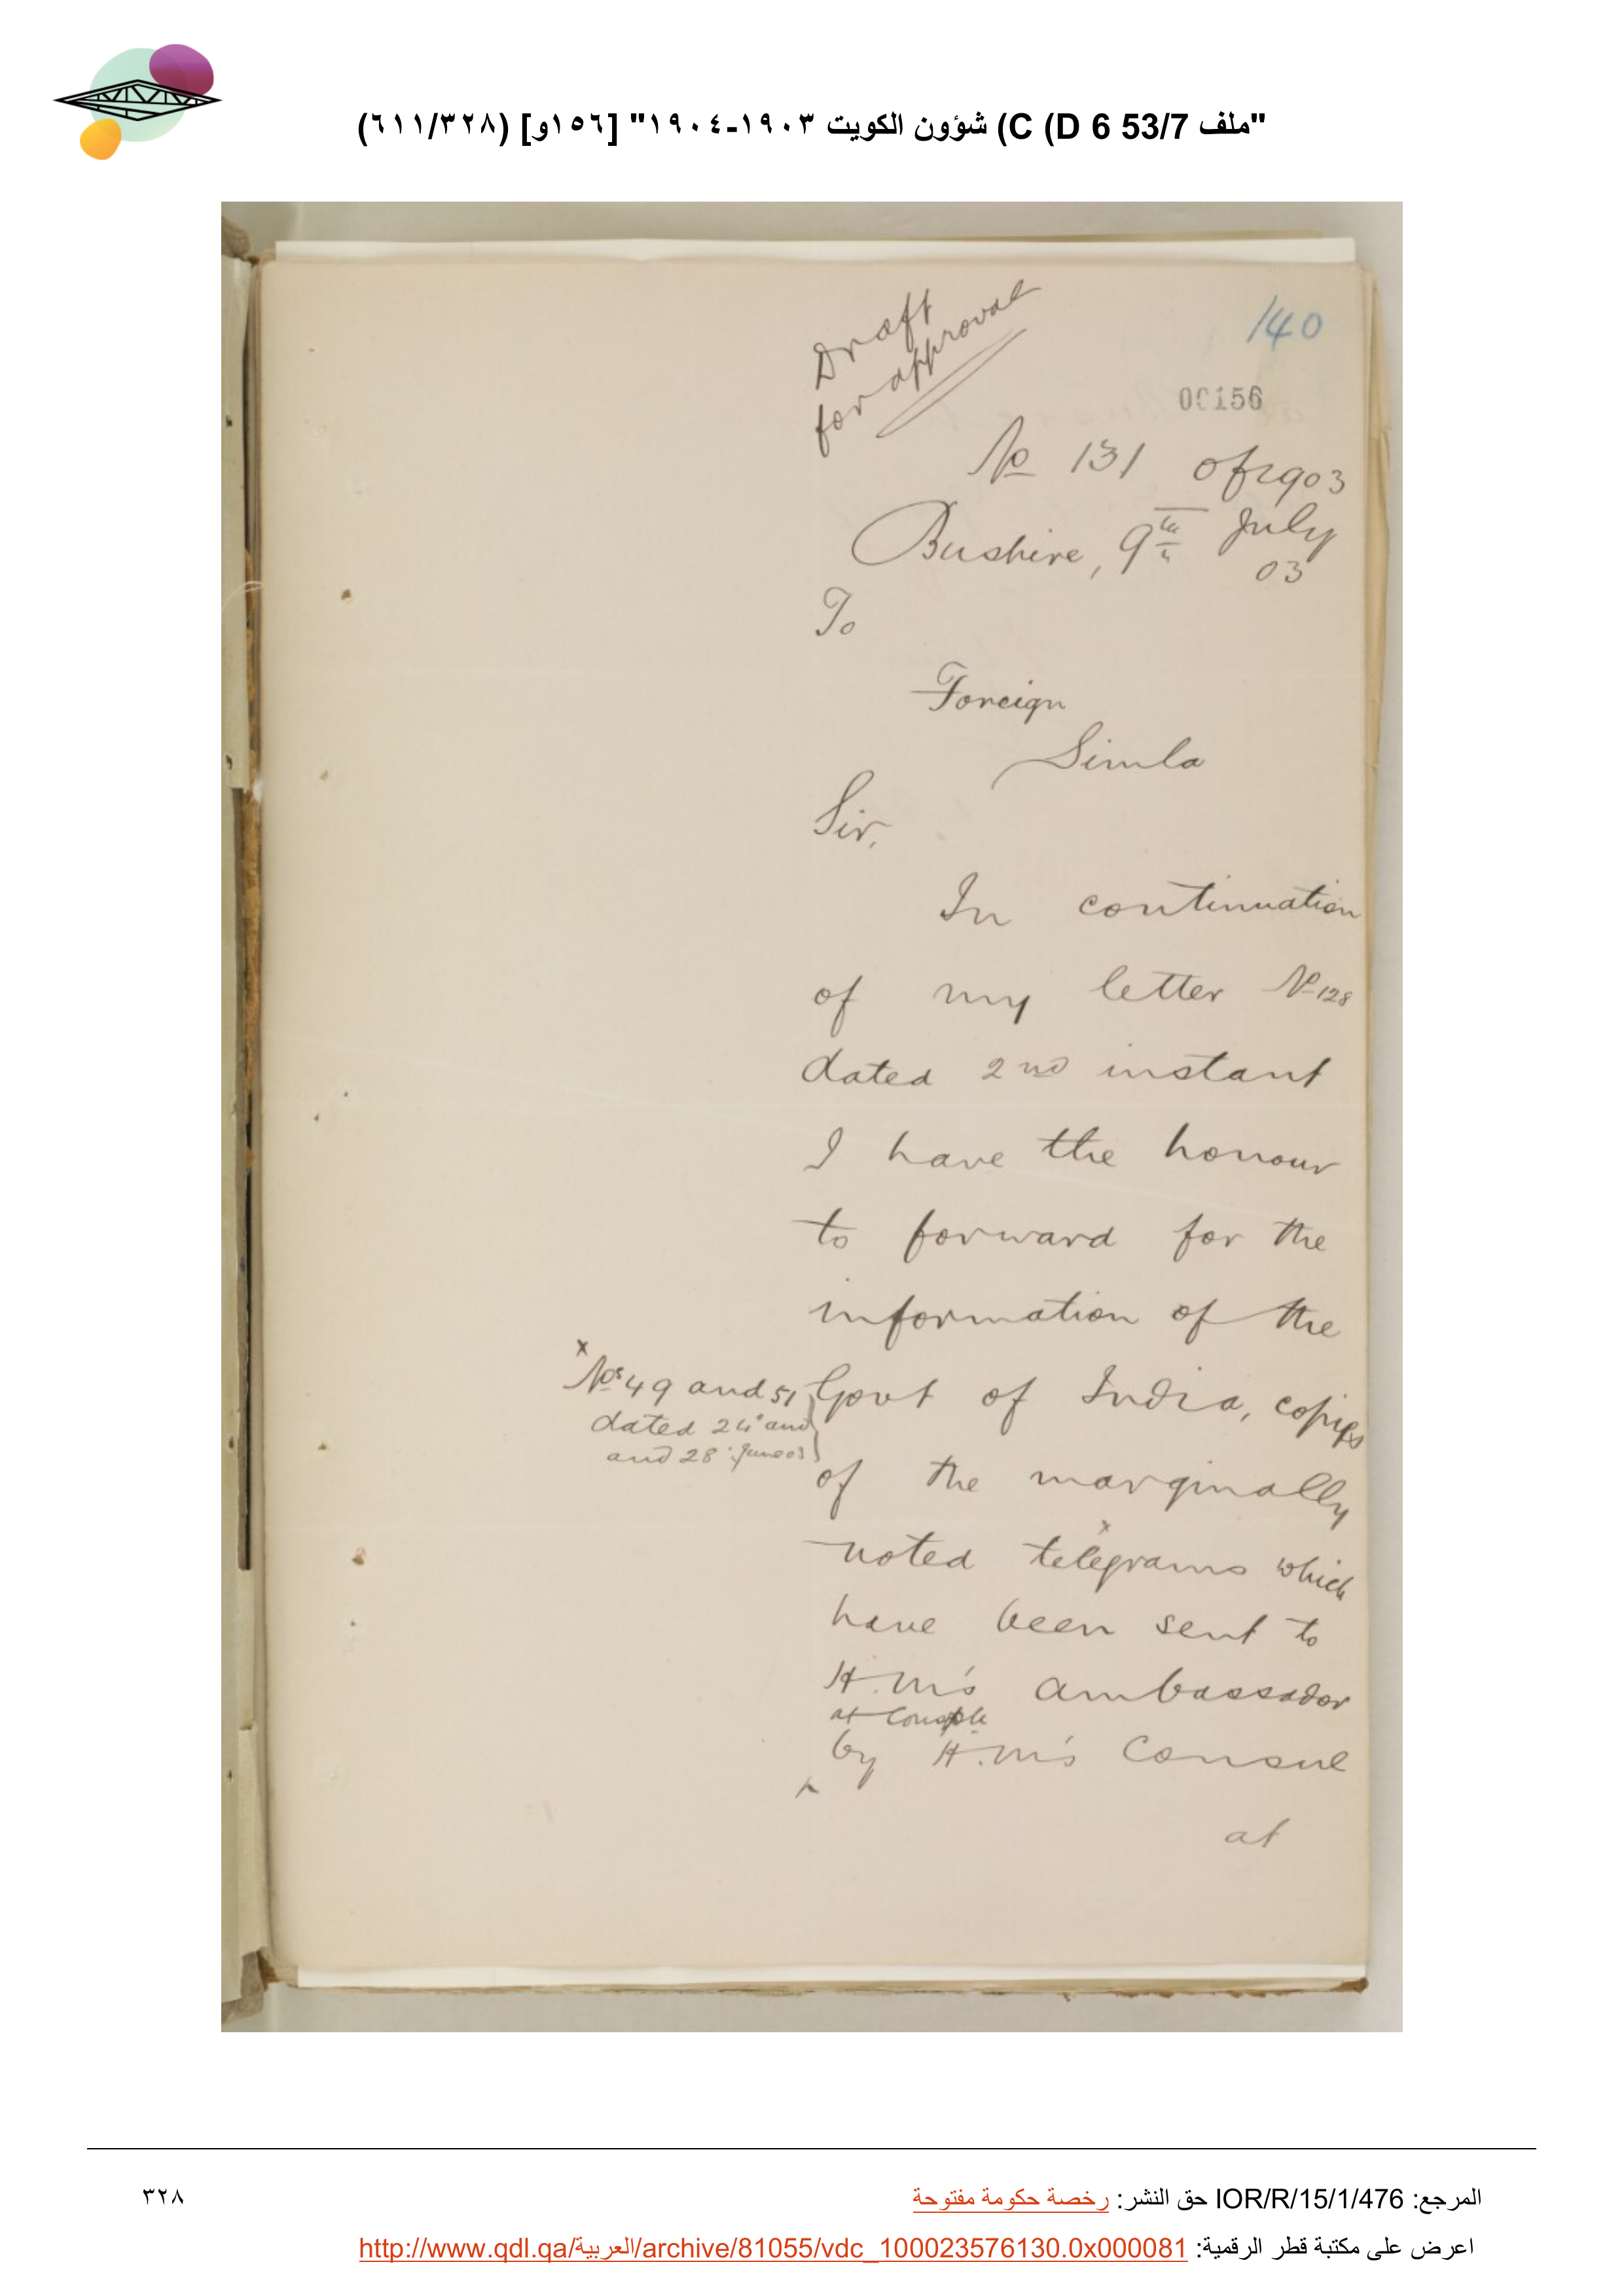 "ملف 53/7 C (D 6) شؤون الكويت ١٩٠٣-١٩٠٤" [١٥٦و] (٦١١/٣٢٨)
Draft
for approval
140
00156
No 131 of 1903
Bushire, 9th July
03
To
Foreign
Simla
Sir,
In continuation
of my letter No 128
dated 2nd instant
I have the honour
to forward for the
information of the
x
Nos 49 and 51
dated 24 and
and 28 June 03
Govt of India, copies
of the marginally
noted telegrams x which
have been sent to
H.M's Ambassador
at Constple
by H.M's Consul
at
المرجع: IOR/R/15/1/476 حق النشر: رخصة حكومة مفتوحة
٣٢٨
اعرض على مكتبة قطر الرقمية: http://www.qdl.qa/العربية/archive/81055/vdc_100023576130.0x000081